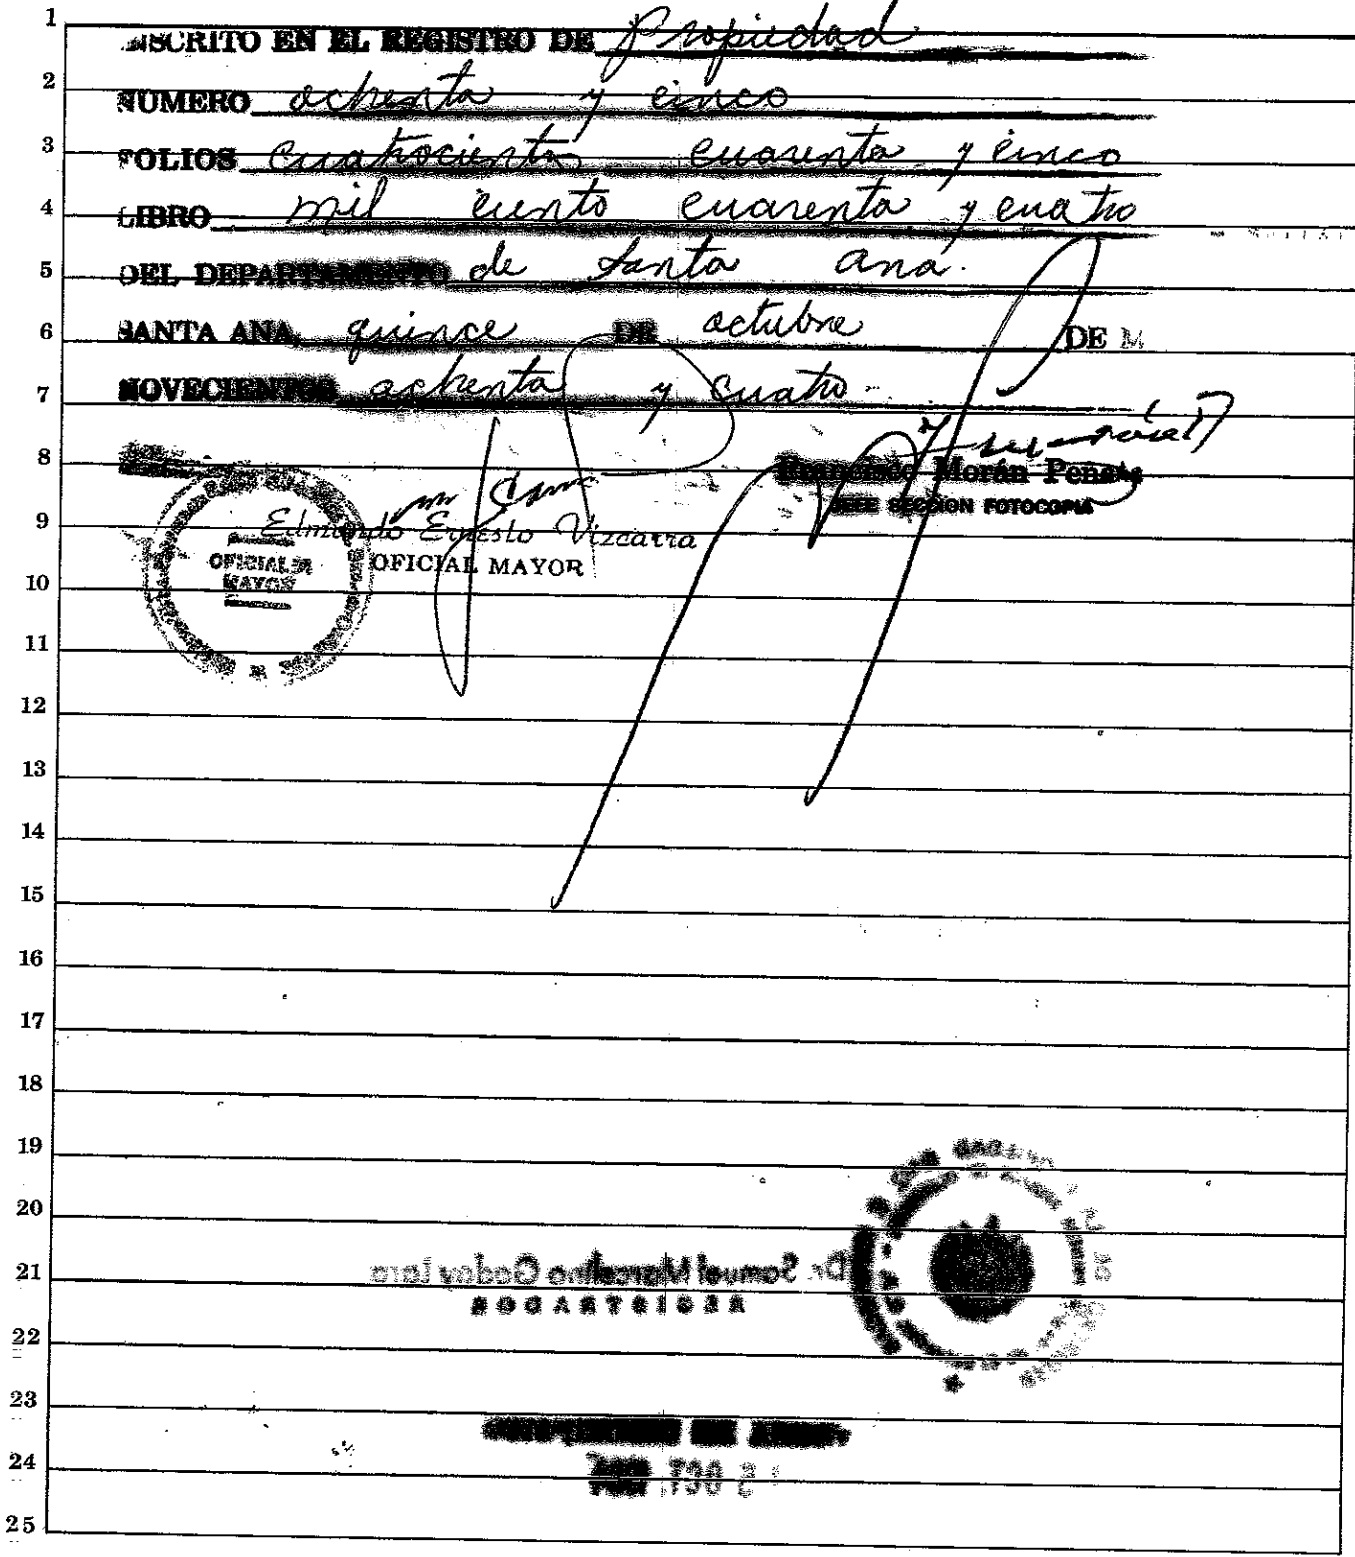 1 INSCRITO EN EL REGISTRO DE Propiedad
2 NUMERO ochenta y cinco
3 FOLIOS Cuatrocientos cuarenta y cinco
4 LIBRO mil ciento cuarenta y cuatro
5 DEL DEPARTAMENTO de Santa Ana.
6 SANTA ANA, quince DE octubre DE M
7 NOVECIENTOS ochenta y cuatro
8 Francisco Morán Peñate
JEFE SECCION FOTOCOPIA
9 Edmundo Ernesto Vizcarra
OFICIAL MAYOR
OFICIALIA MAYOR
10
11
12
13
14
15
16
17
18
19
20
21 Dr. Samuel Marcelino Godoy Lara
REGISTRADOR
22
23
24 15 OCT. 1984
25